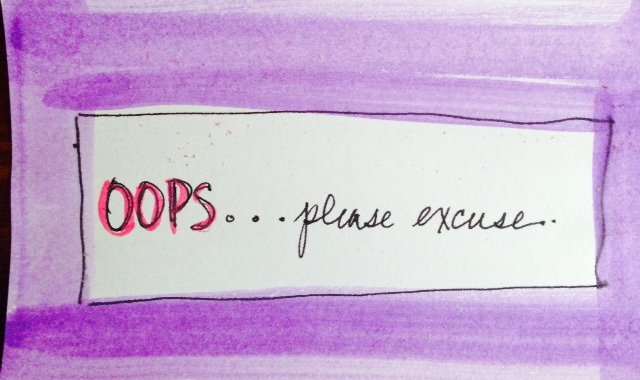 OOPS... please excuse.